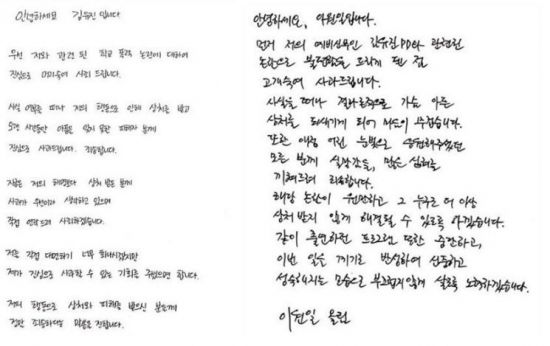 안녕하세요 김유진 입니다
우선 저와 관련 된 학교 폭력 논란에 대하여
진심으로 머리숙여 사죄 드립니다.
사실 여부를 떠나 저의 행동으로 인해 상처를 받고
오랜 시간동안 아픔을 잊지 못한 피해자 분께
진심으로 사과드립니다. 죄송합니다.
지금은 저에게 상처 받은 분께
사과가 우선이라 생각하고 있으며
직접 연락드려 사죄하겠습니다.
저를 직접 대면하기 너무 화나시겠지만
제가 진심으로 사죄할 수 있는 기회를 주셨으면 합니다.
저의 행동으로 상처와 피해를 받으신 분들께
정말 죄송하다는 마음을 전합니다.
안녕하세요, 이원일입니다.
먼저 저의 예비신부인 김유진PD와 관련된
논란으로 불편함을 드리게 된 점
고개숙여 사과드립니다.
사실을 떠나 결과론적으로 가슴 아픈
상처를 되새기게 되어 마음이 무겁습니다.
또한 애정 어린 눈빛으로 응원해주셨던
모든 분께 실망감을, 많은 심려를
끼쳐드려 죄송합니다.
해당 논란이 원만하고 그 누구도 더 이상
상처 받지 않게 해결될 수 있도록 하겠습니다.
같이 출연하던 프로그램 또한 중단하고,
이번 일을 계기로 반성하여 신중하고
성숙해지는 모습으로 부끄럽지않게 살도록 노력하겠습니다.
이원일 올림